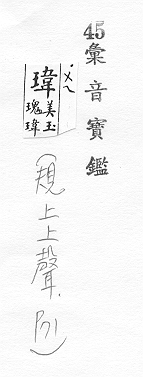 45彙音寶鑑
ㄨㄟˇ
瑋
美玉
瑰瑋
(規上上聲.阝小)